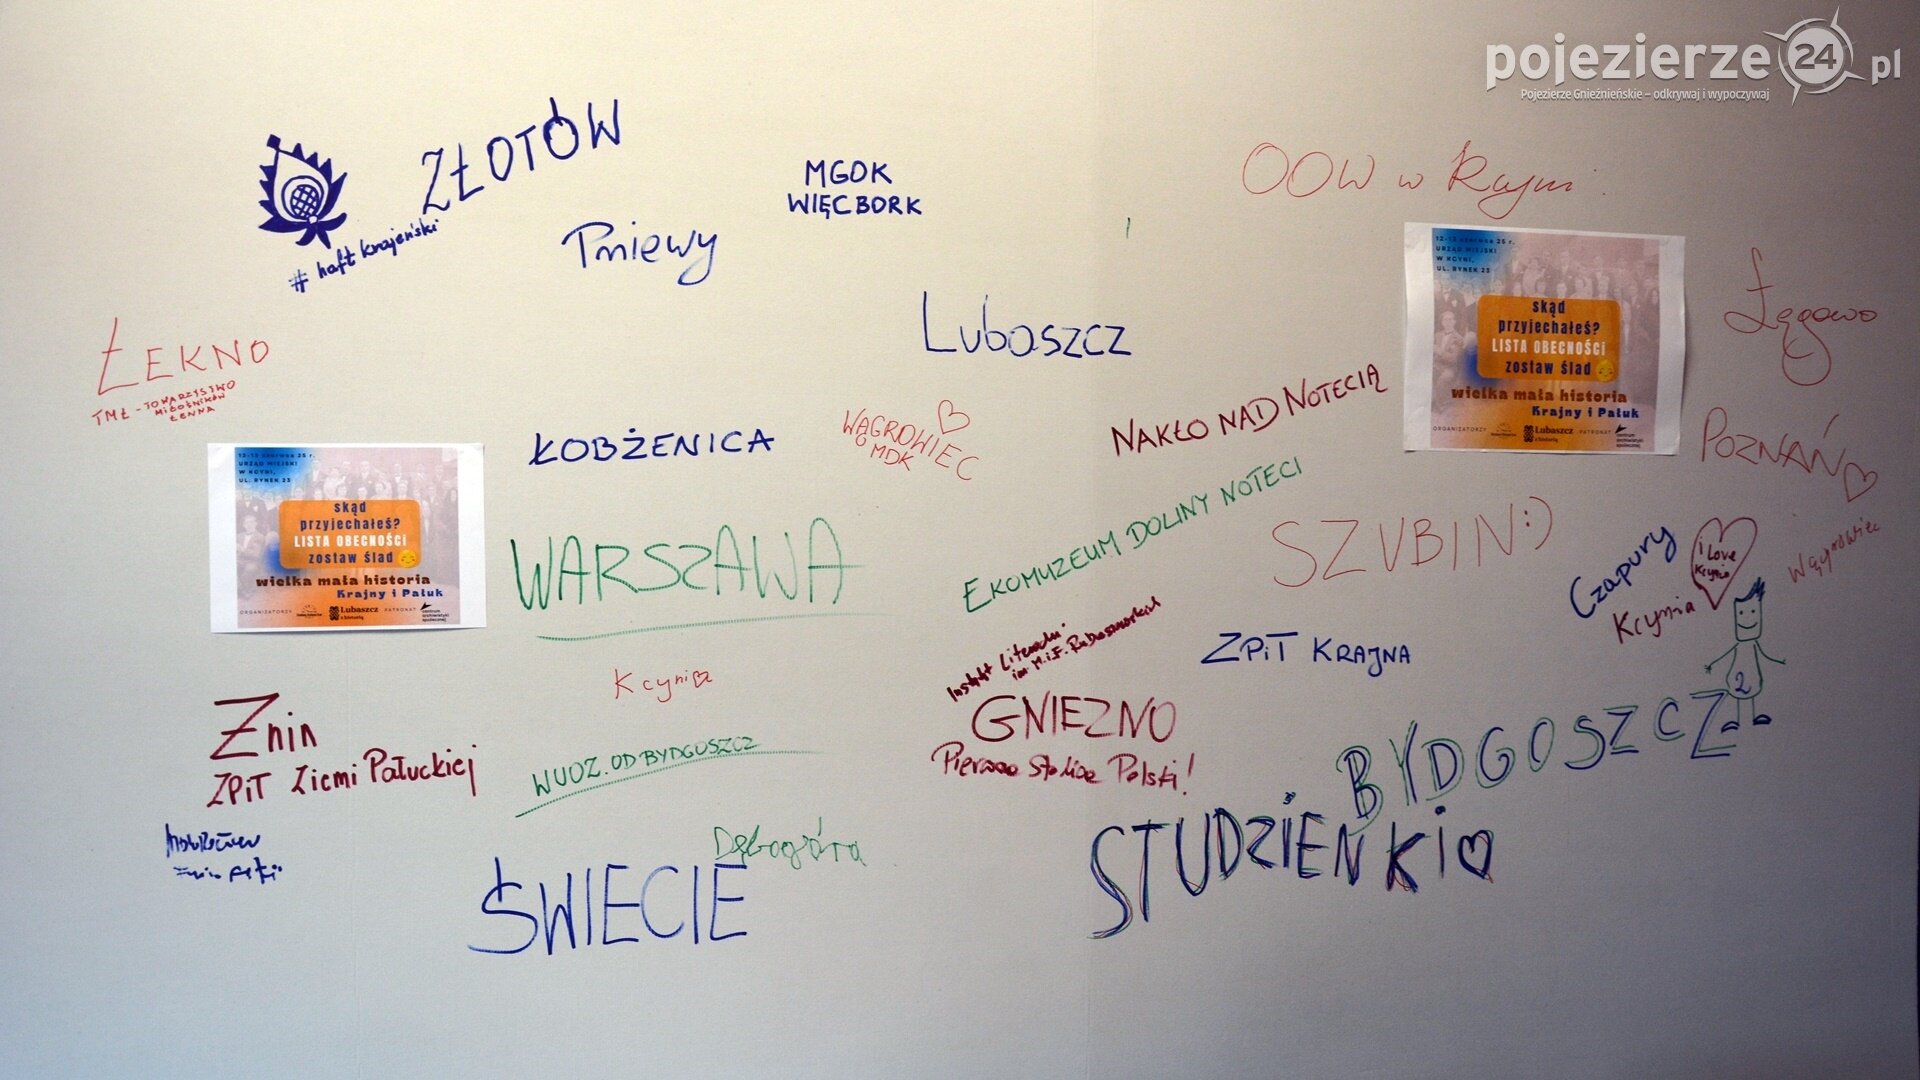 pojezierze24.pl
Pojezierze Gnieźnieńskie – odkrywaj i wypoczywaj
ZŁOTÓW
# haft krajeński
MGOK
WIĘCBORK
Pniewy
OOW w Kcyni
Lubaszcz
Łęgowo
ŁEKNO
TMŁ - TOWARZYSTWO
MIŁOŚNIKÓW
ŁEKNA
12-13 czerwca 25 r.
URZĄD MIEJSKI
W KCYNI,
UL. RYNEK 23
skąd
przyjechałeś?
LISTA OBECNOŚCI
zostaw ślad
wielka mała historia
Krajny i Pałuk
ORGANIZATORZY
Lubaszcz
z historią
PATRONAT
centrum
archiwistyki
społecznej
NAKŁO NAD NOTECIĄ
ŁOBŻENICA
WĄGROWIEC
MDK
POZNAŃ
12-13 czerwca 25 r.
URZĄD MIEJSKI
W KCYNI,
UL. RYNEK 23
skąd
przyjechałeś?
LISTA OBECNOŚCI
zostaw ślad
wielka mała historia
Krajny i Pałuk
ORGANIZATORZY
Lubaszcz
z historią
PATRONAT
centrum
archiwistyki
społecznej
WARSZAWA
EKOMUZEUM DOLINY NOTECI
SZUBIN :)
Czapury
I Love
Kcynia
Kcynia
Wągrowiec
ZPiT KRAJNA
Instytut Literacki
im. M. i F.
GNIEZNO
Pierwsza Stolica Polski!
Kcynia
Żnin
ZPiT Ziemi Pałuckiej
WUOZ. OD BYDGOSZCZ
2
BYDGOSZCZ
STUDZIENKI
Dębogóra
ŚWIECIE